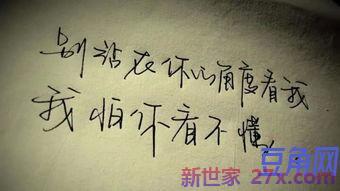 别站在你的角度看我
我怕你看不懂
豆角网
新世家 27x.com